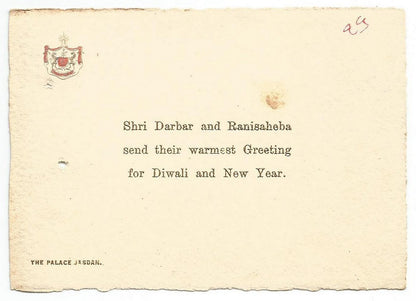 Shri Darbar and Ranisaheba
send their warmest Greeting
for Diwali and New Year.
THE PALACE JASDAN.